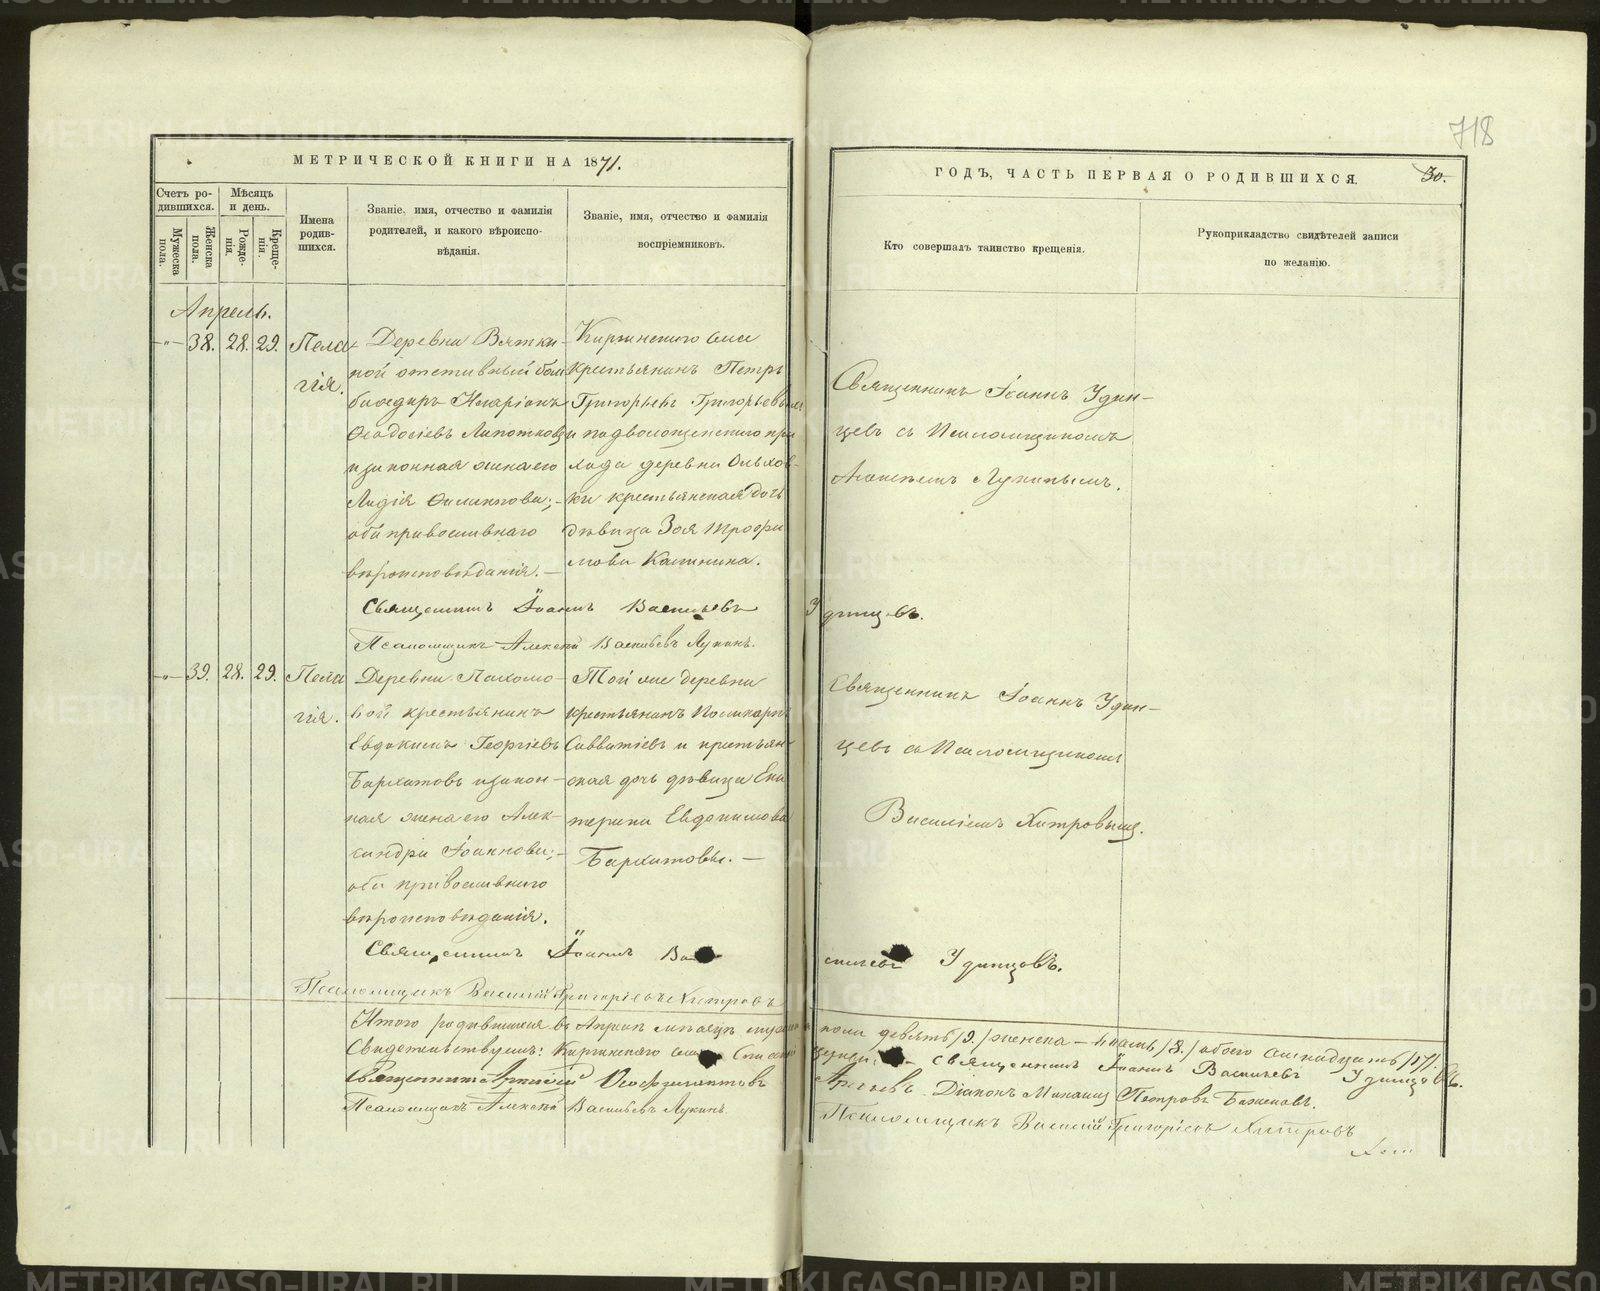 718
МЕТРИЧЕСКОЙ КНИГИ НА 1871.
ГОДЪ, ЧАСТЬ ПЕРВАЯ О РОДИВШИХСЯ.
30.
Счетъ ро-
дившихся.
Мѣсяцъ
и день.
Мужеска
пола.
Женска
пола.
Рожде-
нія.
Креще-
нія.
Имена
родив-
шихся.
Званіе, имя, отчество и фамилія
родителей, и какого вѣроиспо-
вѣданія.
Званіе, имя, отчество и фамилія
воспріемниковъ.
Кто совершалъ таинство крещенія.
Рукоприкладство свидѣтелей записи
по желанію.
Апрель.
-"- 38. 28. 29.
Пела
гія.
Деревни Вятки-
ной отставный бом
бардиръ Иларіонъ
Ѳеодосіевъ Липотковъ
и законная жена его
Лидія Филиппова; -
оба православнаго
вѣроисповѣданія. -
Киргинскаго села
крестьянинъ Петръ
Григорьевъ Григорьевъ
и подволошенскаго при
хода деревни Ольхов-
ки крестьянская дочь
дѣвица Зоя Трофи
мова Калинина.
Священникъ Іоаннъ Удин-
цевъ съ Псаломщикомъ
Алексѣемъ Лукинымъ.
Священникъ Іоаннъ Васильевъ Удинцовъ.
Псаломщикъ Алексѣй Васильевъ Лукинъ.
-"- 39. 28. 29.
Пела
гія.
Деревни Пахомо-
вой крестьянинъ
Евдокимъ Георгіевъ
Бархатовъ и закон-
ная жена его Алек-
сандра Іоаннова; -
оба православнаго
вѣроисповѣданія.
Той же деревни
крестьянинъ Поликарпъ
Савватіевъ и крестьян-
ская дочь дѣвица Ека
терина Евдокимова
Бархатовы. -
Священникъ Іоаннъ Удин-
цевъ съ Псаломщикомъ
Василіемъ Хитровымъ.
Священникъ Іоаннъ Васильевъ Удинцовъ.
Псаломщикъ Василій Григоріевъ Хитровъ
Итого родившихся въ Апрѣлѣ мѣсяцѣ мужеска пола девять /9./ женска - восемь /8./ обоего семнадцать /17/.
Свидетельствуемъ: Киргинскаго села Священникъ Іоаннъ Васильевъ Удинцовъ.
Священникъ Діаконъ Михаилъ Петровъ Баженовъ.
Псаломщикъ Алексѣй Васильевъ Лукинъ.
Псаломщикъ Василій Григоріевъ Хитровъ
METRIKI.GASO-URAL.RU